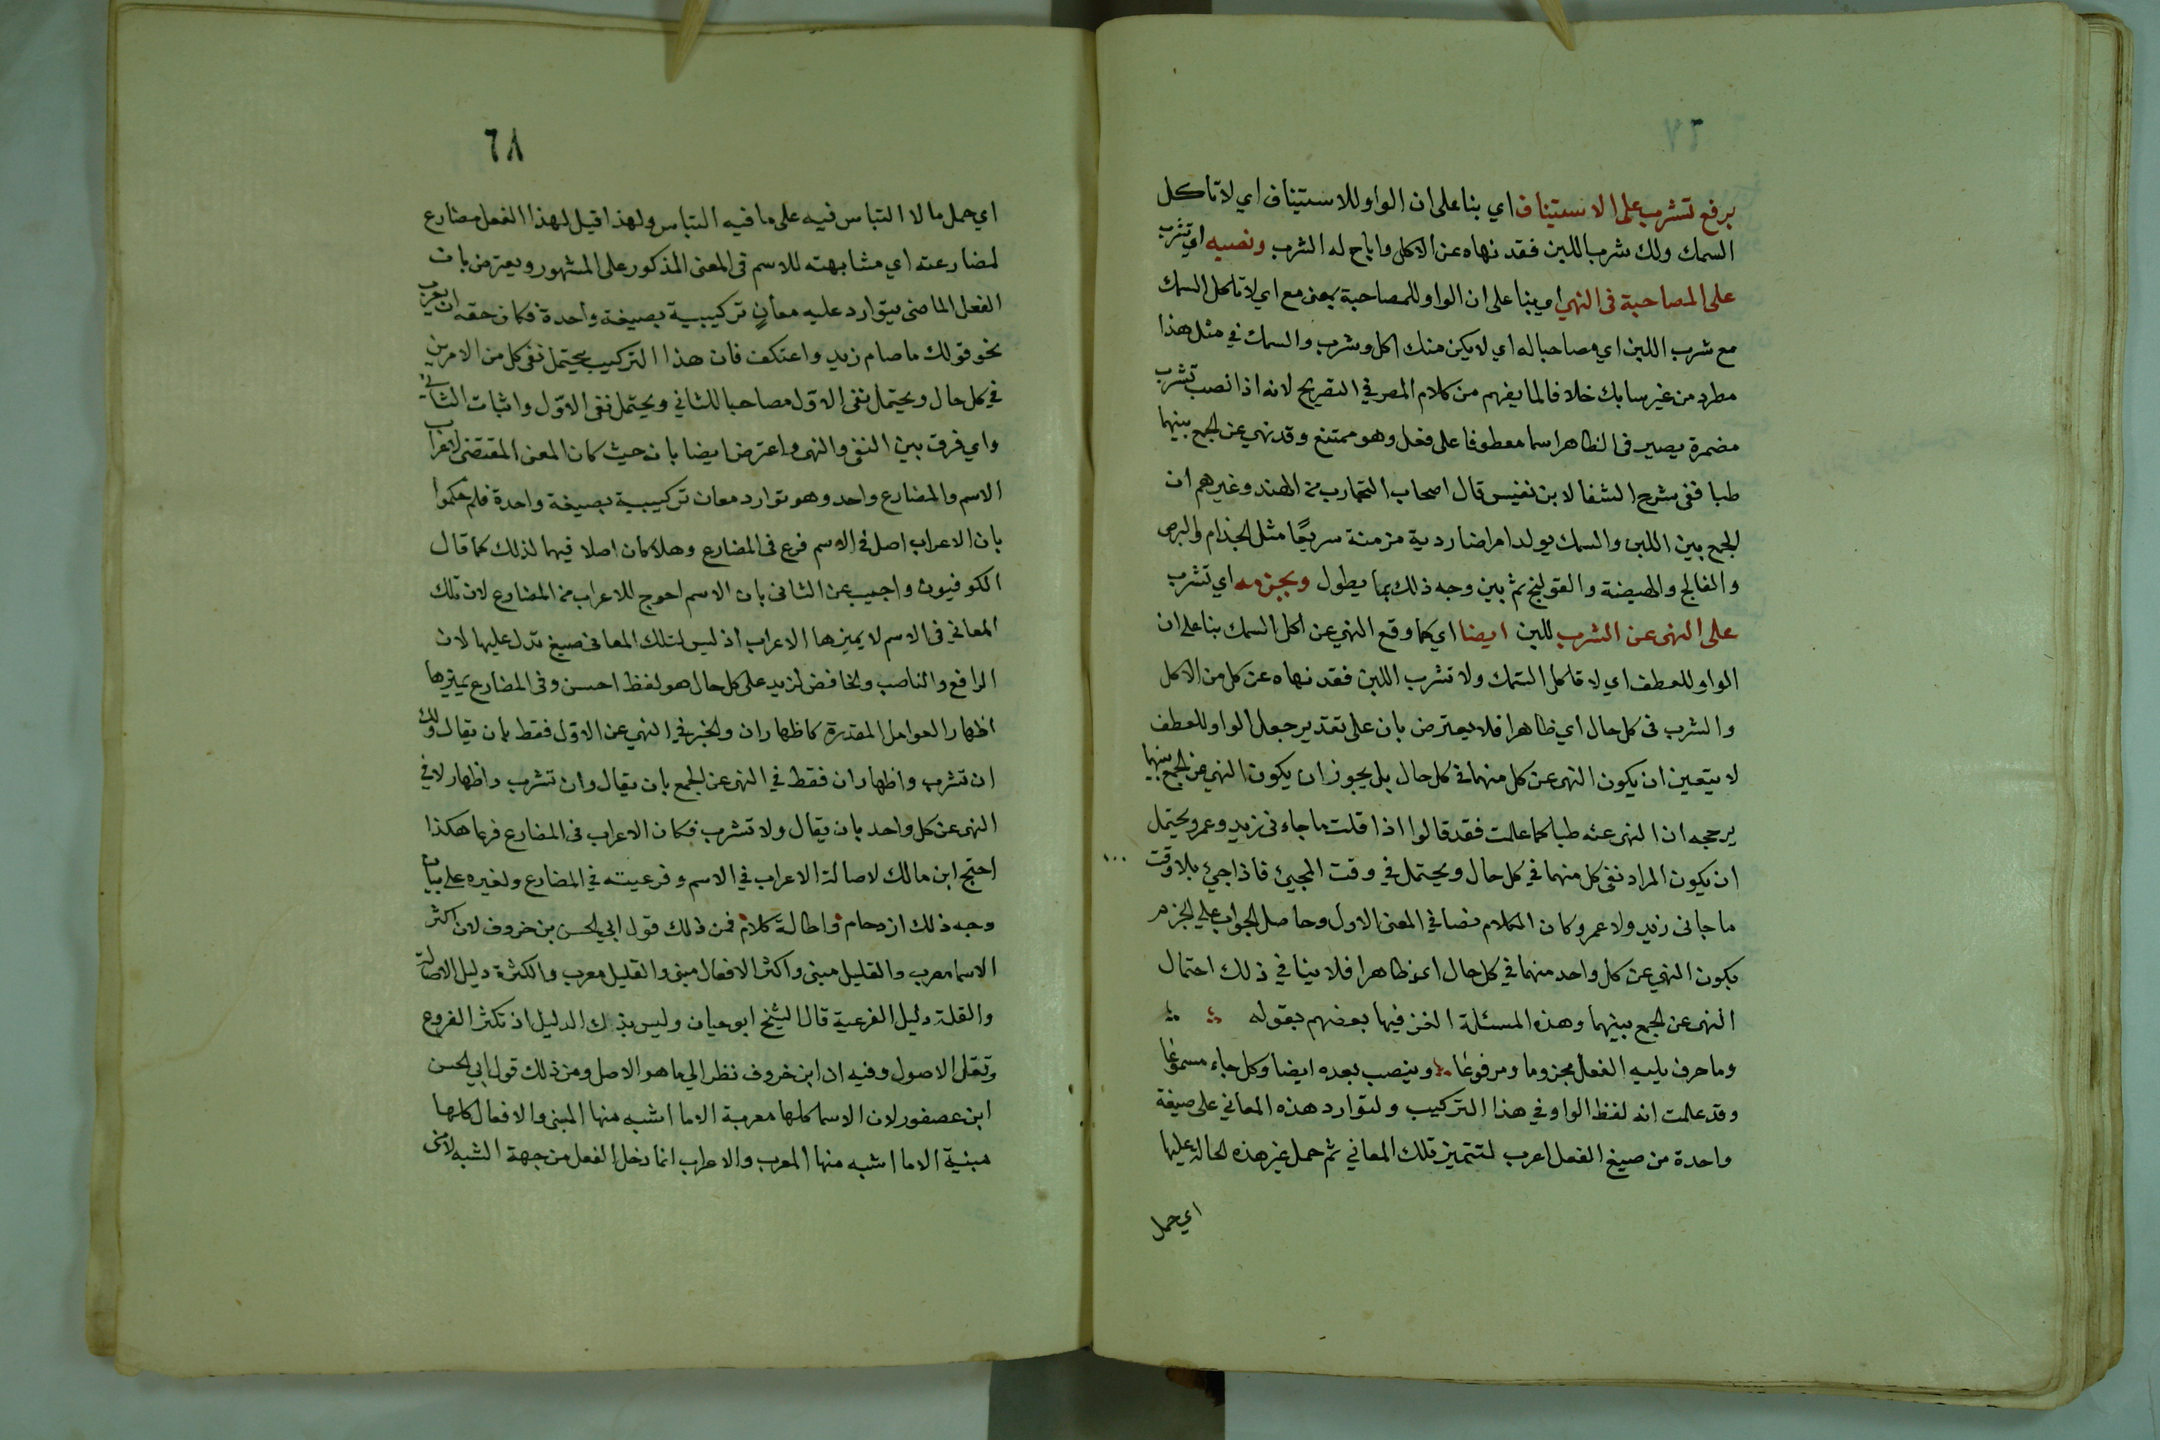 برفع تشرب على الاستيناف اي بنا على ان الواو للاستيناف اي لا تاكل
السمك ولك شرب اللبن فقد نهاه عن الاكل واباح له الشرب ونصبه اي تشرب
على المصاحبة فى النهي اي بنا على ان الواو للمصاحبة بمعنى مع اي لا تاكل السمك
مع شرب اللبن اي مصاحبا له اي لا يكن منك اكل وشرب والسمك في مثل هذا
مطرد من غير سابك خلافا لما يفهم من كلام المص في التصريح لانه اذا نصب تشرب
مضمرة يصير فى الظاهر اسما معطوفا على فعل وهو ممتنع وقد نهي عن الجمع بينهما
طبا ففى شرح الشفا لابن نفيس قال اصحاب التجارب من الهند وغيرهم ان
الجمع بين اللبن والسمك يولد امراضا ردية مزمنة سريعًا مثل الجذام والبرص
والفالج والهيضة والقولنج ثم بين وجه ذلك بما يطول وبجزمه اي تشرب
على النهى عن الشرب للبن ايضا اي كما وقع النهي عن اكل السمك بنا على ان
الواو للعطف اي لا تاكل السمك ولا تشرب اللبن فقد نهاه عن كل من الاكل
والشرب فى كل حال اي ظاهرا فلا يعترض بان على تقدير جعل الواو للعطف
لا يتعين ان يكون النهى عن كل منهما فى كل حال بل يجوز ان يكون النهى عن الجمع بينهما
يرجحه ان النهى عنه طبا كما علمت فقد قالوا اذا قلت ما جاء نى زيد وعمرو يحتمل
ان يكون المراد نفى كل منهما في كل حال ويحتمل في وقت المجيئ فاذا جيئ بلا وقت
ما جانى زيد ولا عمرو كان الكلام نصا في المعنى الاول وحاصل الجواب على الجزم
يكون النهي عن كل واحد منهما في كل حال اي ظاهرا فلا ينافي ذلك احتمال
النهى عن الجمع بينهما وهذه المسئلة الغز فيها بعضهم بقوله
وما حرف يليه الفعل مجزوما ومرفوعًا وينصب بعده ايضا وكل جاء مسموعًا
وقد علمت انه لفظ الواو في هذا التركيب ولتوارد هذه المعاني على صيغة
واحدة من صيغ الفعل اعرب لتتميز تلك المعاني ثم حمل غير هذه الحالة عليها
اي حمل
٦٨
اي حمل ما لا التباس فيه على ما فيه التباس ولهذا قيل لهذا الفعل مضارع
لمضارعته اي مشابهته للاسم فى المعنى المذكور على المشهور ويعترض بان
الفعل الماضى يتوارد عليه معانٍ تركيبية بصيغة واحدة فكان حقه ان يعرب
نحو قولك ما صام زيد واعتكف فان هذا التركيب يحتمل نفى كل من الامرين
في كل حال ويحتمل نفى الاوّل مصاحبا للثاني ويحتمل نفى الاوّل واثبات الثانى
واي فرق بين النفى والنهى واعترض ايضا بانه حيث كان المعنى المقتضى لاعراب
الاسم والمضارع واحد وهو توارد معان تركيبية بصيغة واحدة فلم حكموا
بان الاعراب اصل في الاسم فرع فى المضارع وهلا كان اصلا فيهما لذلك كما قال
الكوفيون واجيب عن الثانى بان الاسم احوج للاعراب من المضارع لان تلك
المعانى فى الاسم لا يميزها الا الاعراب اذ ليس لتلك المعانى صيغ تدل عليها لان
الرافع والناصب والخافض لزيد على كل حال هو لفظ احسن وفى المضارع يميزها
اظهار العوامل المقدرة كاظهار ان والخبر في النهي عن الاوّل فقط بان يقال ولك
ان تشرب واظهار ان فقط في النهى عن الجمع بان يقال وان تشرب واظهار لا في
النهى عن كل واحد بان يقال ولا تشرب فكان الاعراب فى المضارع فرعا هكذا
احتج ابن مالك لاصالة الاعراب في الاسم وفرعيته في المضارع ولغيره على بيان
وجه ذلك ازدحام واطالة كلام فمن ذلك قول ابي الحسن بن خروف لان اكثر
الاسما معرب والقليل مبنى واكثر الافعال مبنى والقليل معرب والكثرة دليل الاصالة
والقلة دليل الفرعية قال الشيخ ابو حيان وليس بذلك الدليل اذ تكثر الفروع
وتقل الاصول وفيه ان ابن خروف نظر الي ما هو الاصل ومن ذلك قول ابي الحسن
ابن عصفور لان الاسما كلها معربة الا ما اشبه منها المبنى والافعال كلها
مبنية الا ما اشبه منها المعرب والاعراب انما دخل الفعل من جهة الشبه